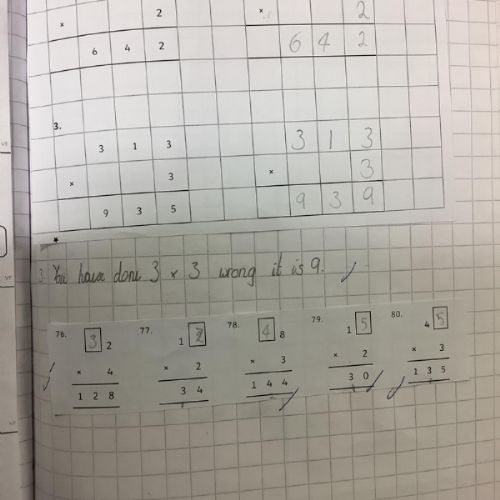 2 2
× ×
6 4 2 6 4 2
3.
3 1 3 3 1 3
× 3 × 3
9 3 5 9 3 9
*
3. You have done 3 × 3 wrong it is 9.
76. 77. 78. 79. 80.
3 2 1 7 4 8 1 5 4 5
× 4 × 2 × 3 × 2 × 3
1 2 8 3 4 1 4 4 3 0 1 3 5
1 1